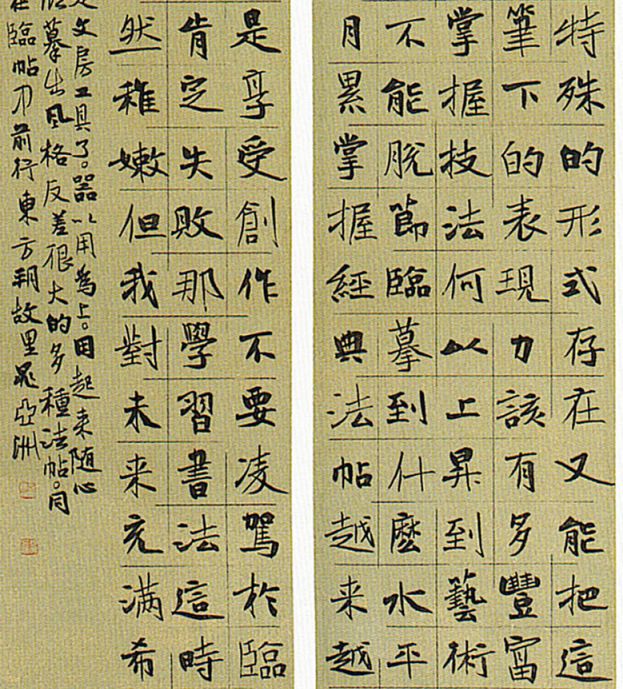 特殊的形式存在又能把這
筆下的表現力該有多豐富
掌握技法何以上昇到藝術
不能脫節臨摹到什麼水平
月累掌握經典法帖越来越
是享受創作不要凌駕於臨
肯定失敗那學習書法這時
然稚嫩但我對未来充满希
文房工具了。器以用為上。因起来随心
摹出風格反差很大的多種法帖。同
在臨帖前行東方朔故里晁亞洲